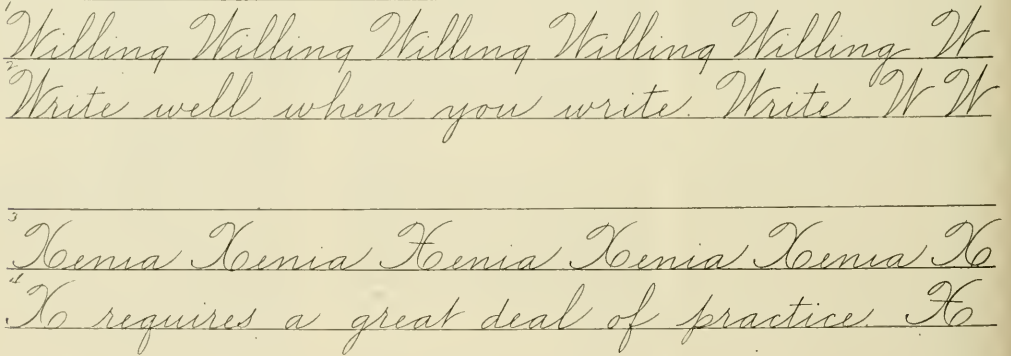 1 Willing Willing Willing Willing Willing W
2 Write well when you write. Write W W
3 Xenia Xenia Xenia Xenia Xenia X
4 X requires a great deal of practice. X